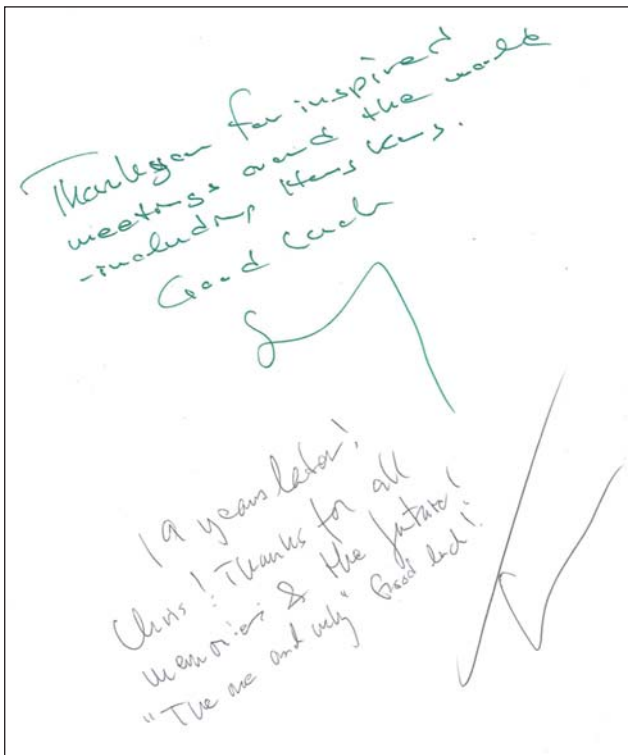 Thank you for inspired
meetings around the world
-including Hans Kung.
Good Luck
19 years later!
Chris! Thanks for all
memories & the future!
"The me and why" Good luck!